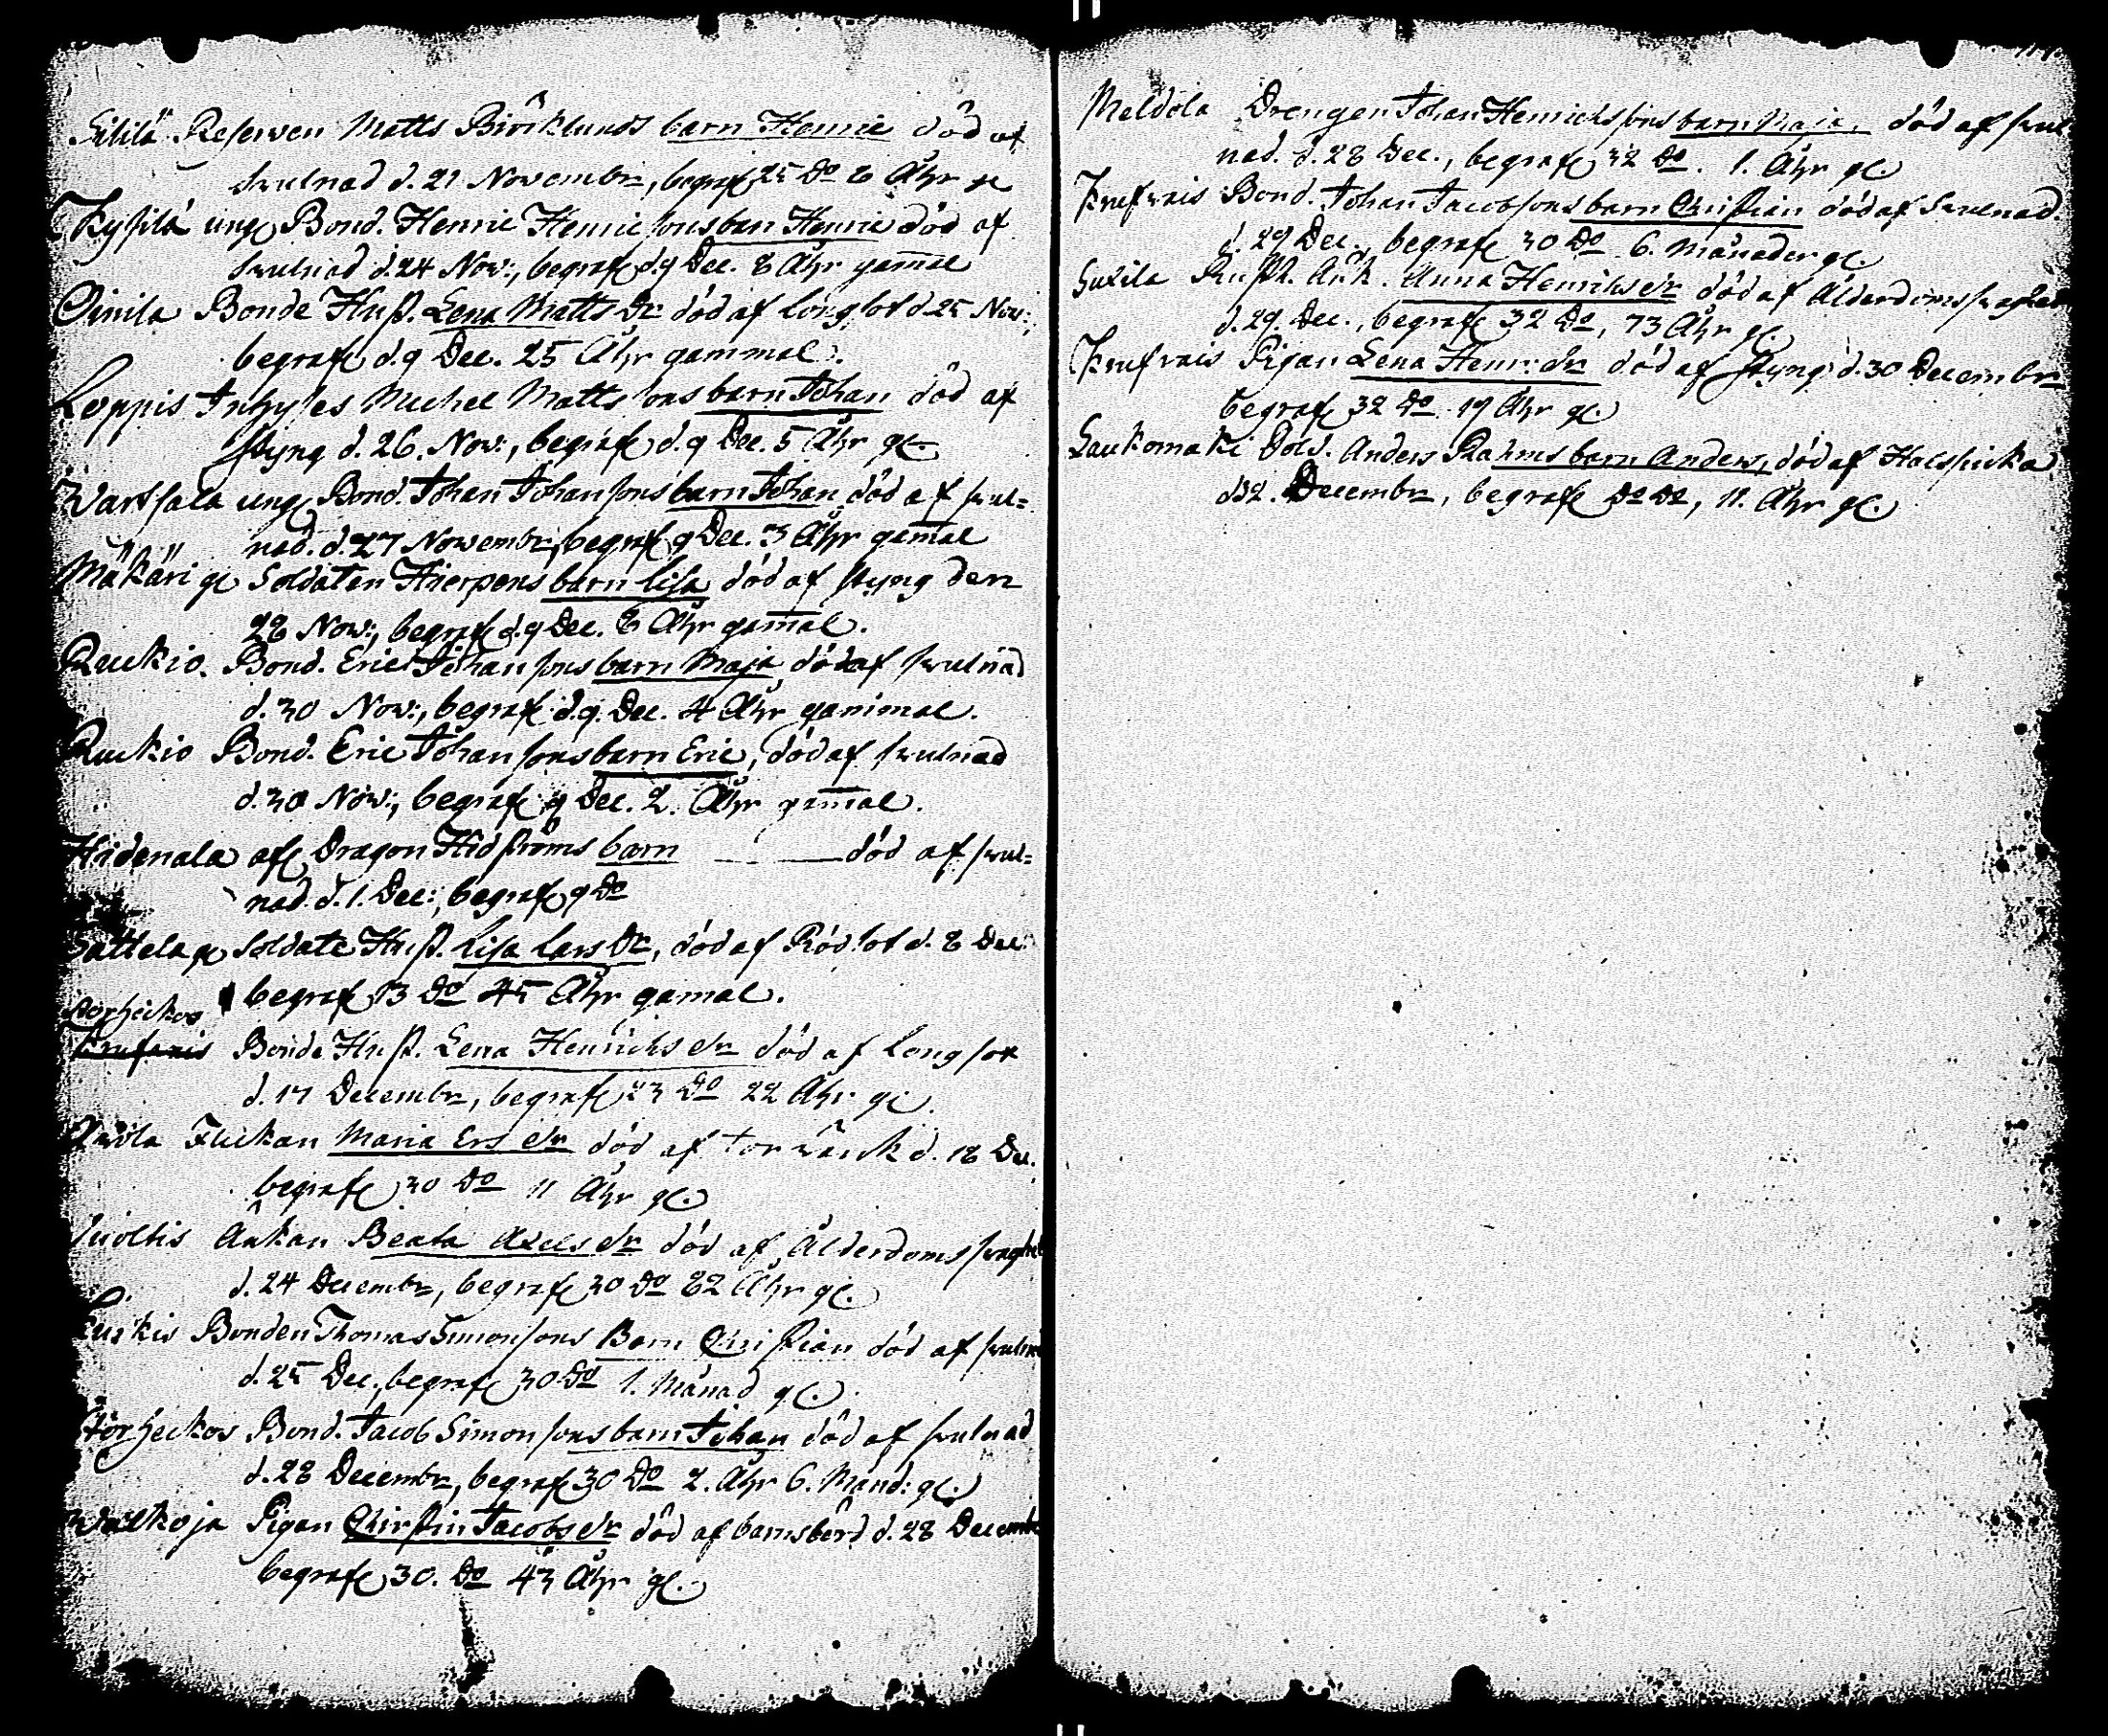 Sitilä Reserven Matts Biörklunds barn Henric död af
swulnad d. 21 Novembr, begraf. 25 Do 8 Åhr gl
Kyßilä ung Bond. Henric Henricsons barn Henric död af
swulnad d. 24 Nov:, begraf. d. 9 Dec. 8 Åhr gamal
Oinila Bonde Hust. Lena Matts Dr död af longsot d 25 Nov:
begraf. d. 9 Dec. 25 Åhr gammal.
Loppis Inhyses Michel Mattssons barn Johan död af
styng d. 26. Nov:, begraf. d. 9 Dec. 5 Åhr gl.
Wartsala ung Bond. Johan Johansons barn Johan död af swul=
nad. d. 27 Novembr, begraf. 9 Dec. 3 Åhr gamal
Mäkäri gl Soldaten Hierpens barn Lisa död af styng den
28 Nov:, begraf. d. 9 Dec. 8 Åhr gamal.
Ruckio. Bond. Eric Johansons barn Maja död af swulnad
d. 30 Nov:, begraf. d. 9. Dec. 4 Åhr gammal.
Ruckio Bond. Eric Johansons barn Eric, död af swulnad
d. 30 Nov:, begraf. 9 Dec. 2. Åhr gamal.
Hidenala afs. Dragon Hidströms barn död af swul=
nad. d. 1. Dec:, begraf. 9 Do
Sattela gl Soldate Hust. Lisa Lars Dr, död af Rödsot d. 8 Dec:
begraf. 13 Do 45 Åhr gamal.
Störheickos
Bonde Hust. Lena Henrichs dr död af longsot
d. 17 Decembr, begraf. 23 Do 22 Åhr gl.
Flickan Maria Ers dr död af torrwärk d. 18 Dec.
begraf. 30 Do 11 Åhr gl.
Juoltis Änkan Beata Axels dr död af Ålderdomsswaghet
d. 24 Decembr, begraf. 30 Do 82 Åhr gl.
Bonden Thomas Simonsons Barn Christian död af swulnad
d. 25 Dec., begraf. 30 Do 1. Månad gl.
Störheckos Bond. Jacob Simonsons barn Johan död af swulnad
d. 28 Decembr, begraf. 30 Do 2. Åhr 6. Månd: gl.
Walkoja Pigan Christin Jacobs dr död af barnsbörd d. 28 Decembr
begraf. 30. Do 43 Åhr gl.
Meldola Drengen Johan Henrichssons barn Maja, död af swul
nad. d. 28 Dec., begraf. 32 Do. 1. Åhr gl.
Knefvais Bond. Johan Jacobsons barn Christian död af Swulnad.
d. 29 Dec., begraf. 30 Do 6. Månader gl.
Suxila Rusth. Änk. Anna Henriks dr död af Ålderdomsswaghet
d. 29. Dec., begraf. 32 Do, 73 Åhr gl.
Knefvais Pigan Lena Henr: dr död af styng d. 30 Decembr
begraf. 32 Do 19 Åhr gl.
Laukomaki Bold. Anders Rahms barn Anders, död af Halssiuka
d32. Decembr, begraf. Do Do, 11. Åhr gl.